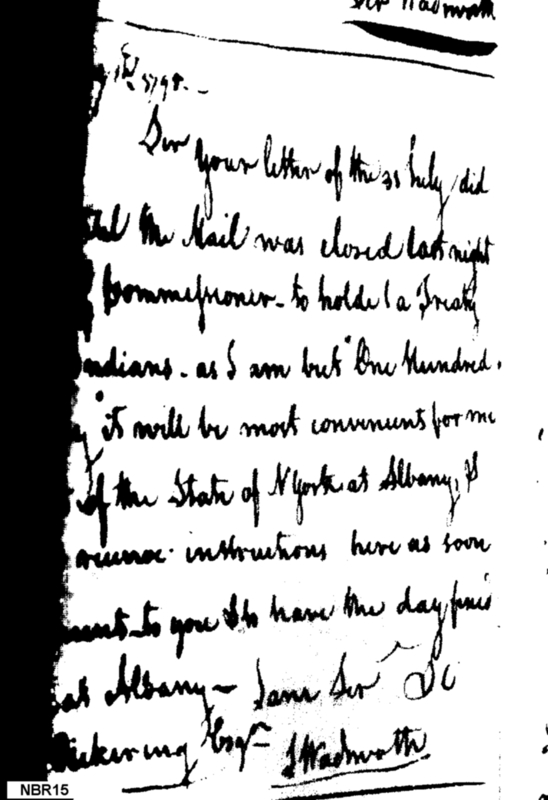 Wadsworth
1798.
Sir Your letter of the 31 July did
the Mail was closed last night
Commissioner - to holde a Treaty
Indians - as I am but "One Hundred
" it will be most convenient for me
of the State of N York at Albany, I
receive instructions here as soon
to you & to have the day
at Albany - I am Sir
Pickering Esqr J Wadsworth
NBR15